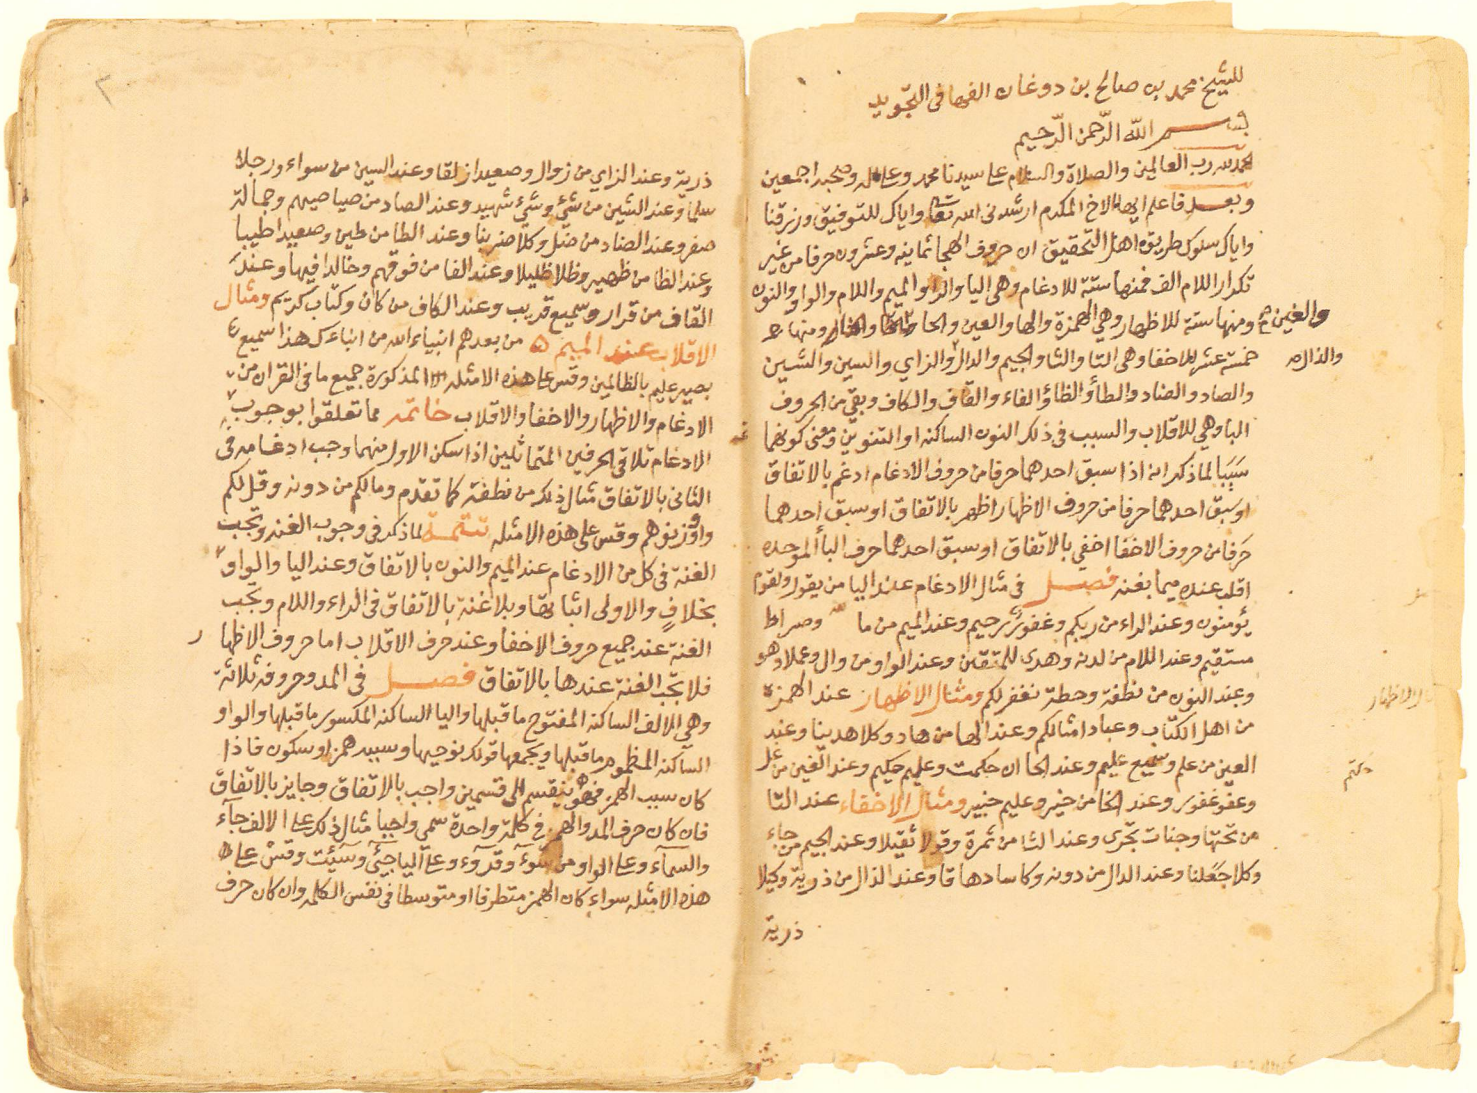 للشيخ محمد بن صالح بن دوغان في التجويد
بسم الله الرحمن الرحيم
الحمد لله رب العالمين والصلاة والسلام على سيدنا محمد وعلى اله وصحبه اجمعين
وبعد فاعلم ايها الاخ المكرم ارشدني الله تعالى واياك للتوفيق ورزقنا
واياك سلوك طريقة اهل التحقيق ان حروف الهجا ثمانيه وعشرون حرفا من غير
تكرار اللام الف فمنها ستة للادغام وهي اليا والرا والميم واللام والواو والنون
ومنها ستة للاظهار وهي الهمزة والها والعين والحا والخا ومنها
والغين صح
خمسة عشر للاخفا وهي التا والثا والجيم والدال والزاي والسين والشين
والذال صح
والصاد والضاد والطا والظا والفاء والقاف والكاف وبقي من الحروف
البا وهي للاقلاب والسبب في ذلك النون الساكنه او التنوين ومعنى كونهما
سببا لما ذكر انه اذا سبق احدهما حرفا من حروف الادغام ادغم بالاتفاق
او سبق احدهما حرفا من حروف الاظهار اظهر بالاتفاق او سبق احدهما
حرفا من حروف الاخفا اخفي بالاتفاق او سبق احدهما حرف البا الموحده
اقلب عنده ميما بغنه فصل في مثال الادغام عند اليا من يقول ولقوم
يؤمنون وعند الراء من ربكم وغفور رحيم وعند الميم من ما وصراط
مستقيم وعند اللام من لدنه وهدى للمتقين وعند الواو من وال وعملا وهو
وعند النون من نطفة وحطة نغفر لكم ومثال الاظهار عند الهمزة
من اهل الكتاب وعباد امثالكم وعند الها من هاد وكلا هدينا وعند
العين من علم وسميع عليم وعند الحا ان حكمت وعليم حكيم وعند الغين من غل
وعفو غفور وعند الخا من خير وعليم خبير ومثال الاخفاء عند التا
من تحتها وجنات تجري وعند الثا من ثمرة وقولا ثقيلا وعند الجيم من جاء
وكلا جعلنا وعند الدال من دونه وكاسا دهاقا وعند الذال من ذرية وكيلا
ذرية
ذرية وعند الزاي من زوال وصعيدا زلقا وعند السين من سواء ورجلا
سلما وعند الشين من شيء وشيء شهيد وعند الصاد من صياصيهم وجمالة
صفر وعند الضاد من ضل وكلا ضربنا وعند الطا من طين وصعيدا طيبا
وعند الظا من ظهير وظلا ظليلا وعند الفا من فوقهم وخالدا فيها وعند
القاف من قرار وسميع قريب وعند الكاف من كان وكتاب كريم ومثال
الاقلاب عند الميم من بعدهم انبياء الله من انباءك هذا سميع
بصير عليم بالظالمين وقس على هذه الامثله المذكورة جميع ما في القران من
الادغام والاظهار والاخفا والاقلاب خاتمه مما تعلقوا بوجوب
الادغام تلاقي الحرفين المتماثلين اذا سكن الاول منهما وجب ادغامه في
الثاني بالاتفاق مثال ذلك من نطفة كما تقدم ومالكم من دونه وقل لكم
واو زنوهم وقس على هذه الامثله تتمة لما ذكر في وجوب الغنه وتجب
الغنة في كل من الادغام عند الميم والنون بالاتفاق وعند اليا والواو
بخلاف والاولى اثباتها وبلا غنة بالاتفاق في الراء واللام وتجب
الغنة عند جميع حروف الاخفا وعند حرف الاقلاب اما حروف الاظها ر
فلا تجب الغنة عندها بالاتفاق فصل في المد وحروفه ثلاثة
وهي الالف الساكنة المفتوح ما قبلها واليا الساكنة المكسور ما قبلها والواو
الساكنة المظموم ما قبلها ويجمعها قولك نوحيها وسببه همز او سكون فاذا
كان سبب الهمز فهو ينقسم الى قسمين واجب بالاتفاق وجايز بالاتفاق
فان كان حرف المد والهمز في كلمة واحدة سمي واجبا مثال ذلك على الالف جآء
والسمآء وعلى الواو من سوء وقروء وعلى اليا جيئ وسيئت وقس على
هذه الامثله سواء كان الهمز متطرفا او متوسطا في نفس الكلمه وان كان حرف